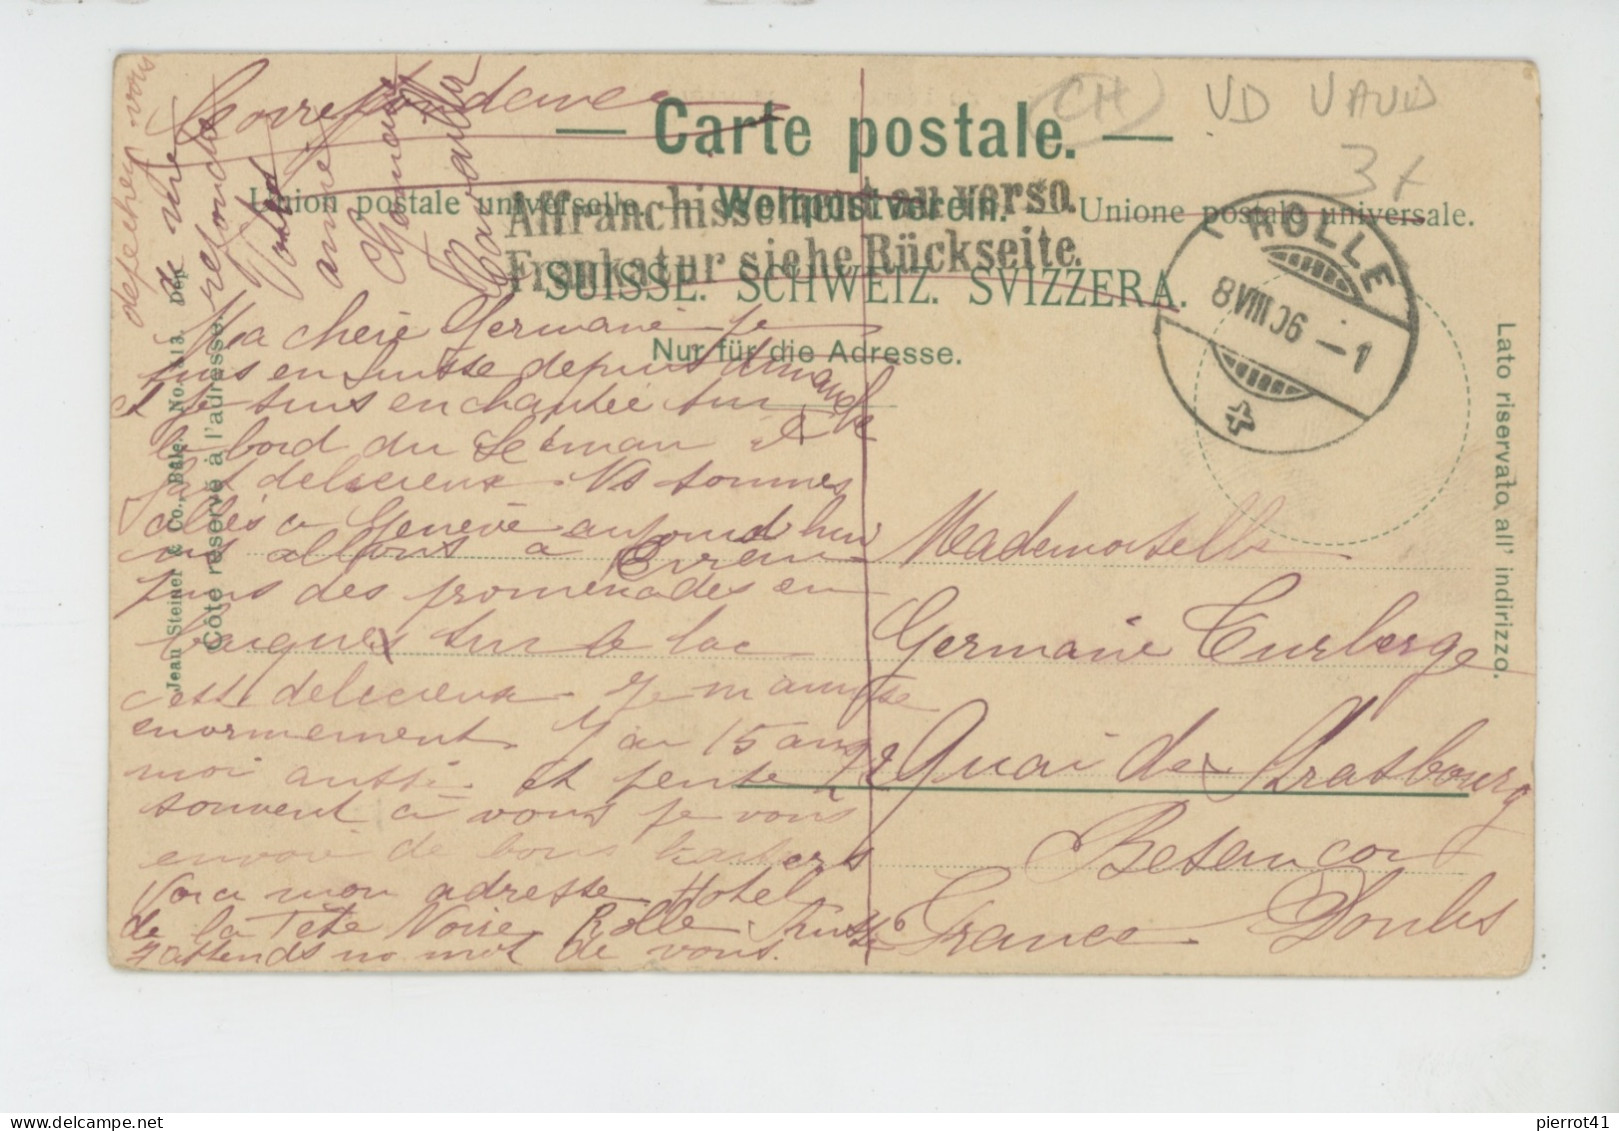 CH VD VAUD
3 f
Correspondance
— Carte postale. —
Union postale universelle. — Weltpostverein. — Unione postale universale.
Affranchissement au verso.
Frankatur siehe Rückseite.
SUISSE. SCHWEIZ. SVIZZERA.
Nur für die Adresse.
ROLLE
8 VIII 06 – 1
Lato riservato all' indirizzo.
Jean Steiner & Co., Bâle. No. 113. Dép.
Côté réservé à l'adresse.
Ma chère Germaine je
suis en Suisse depuis dimanche
et je suis enchantée sur
le bord du Léman il
fait delecieux. Ns sommes
allés a Genève aujourd'hui
ns allons a
puis des promenades en
barques sur le lac
c'est delecieux. Je m'amuse
enormement. J'ai 15 ans
moi aussi. et pense
souvent à vous je vous
envoie de bons baisers
Voici mon adresse Hotel
de la Tête Noire Rolle Suisse
J'attends un mot de vous.
depechez vous
de me
repondre
Votre
amie
Germaine
Mademoiselle
Germaine Curberge
72 Quai de Strasbourg
Besancon
France. Doubs
pierrot41